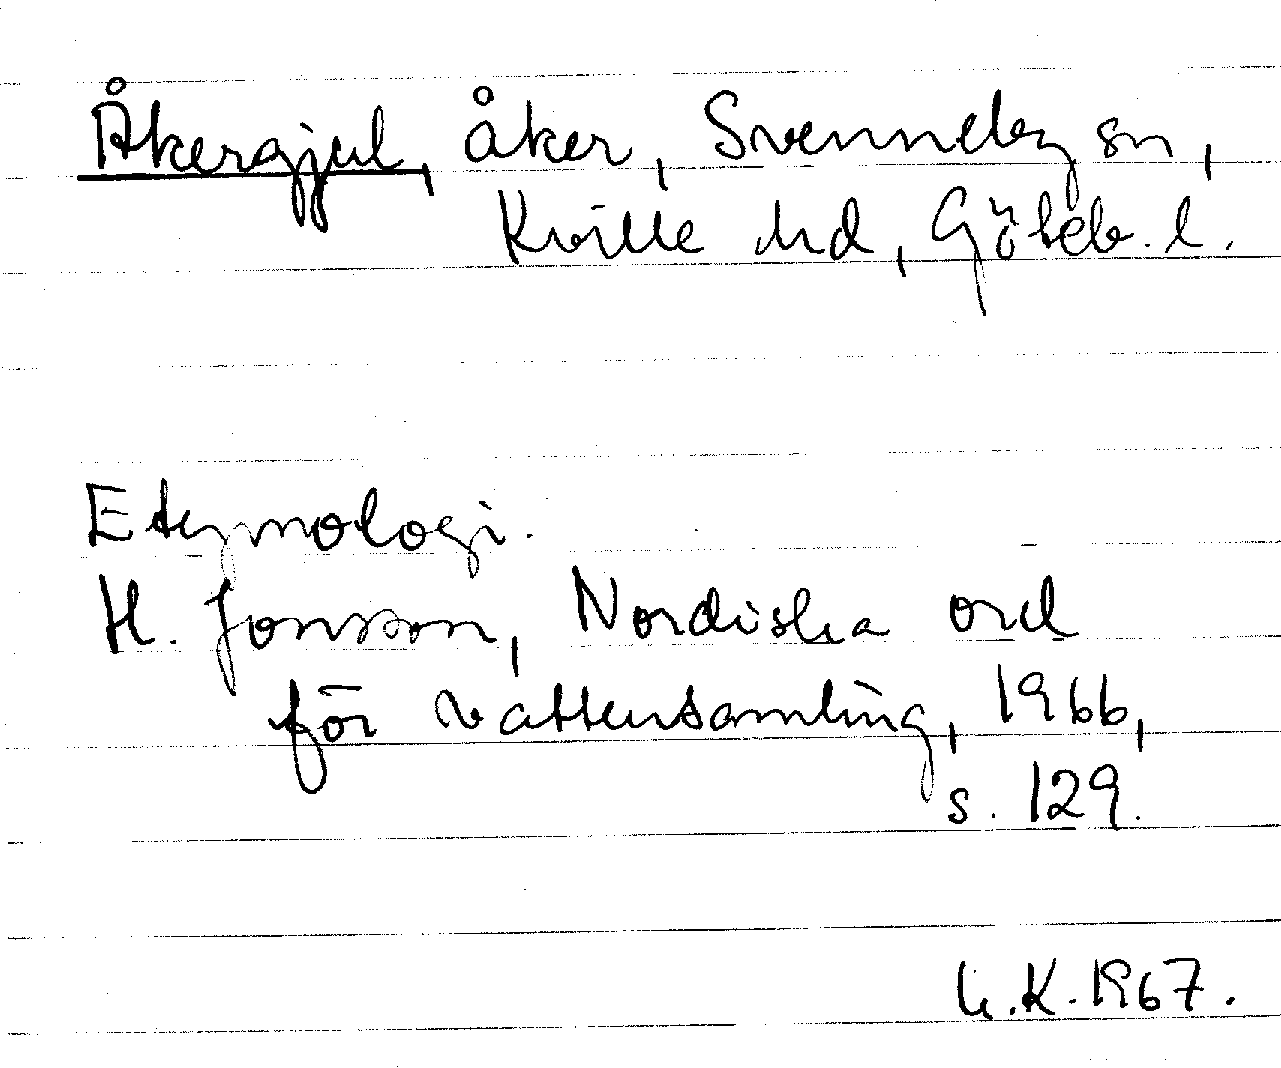 Åkergjul, åker, Svenneby sn,
Kville hd, Göteb. l.
Etymologi.
H. Jonsson, Nordiska ord
för vattensamling, 1966,
s. 129.
K. 1967.